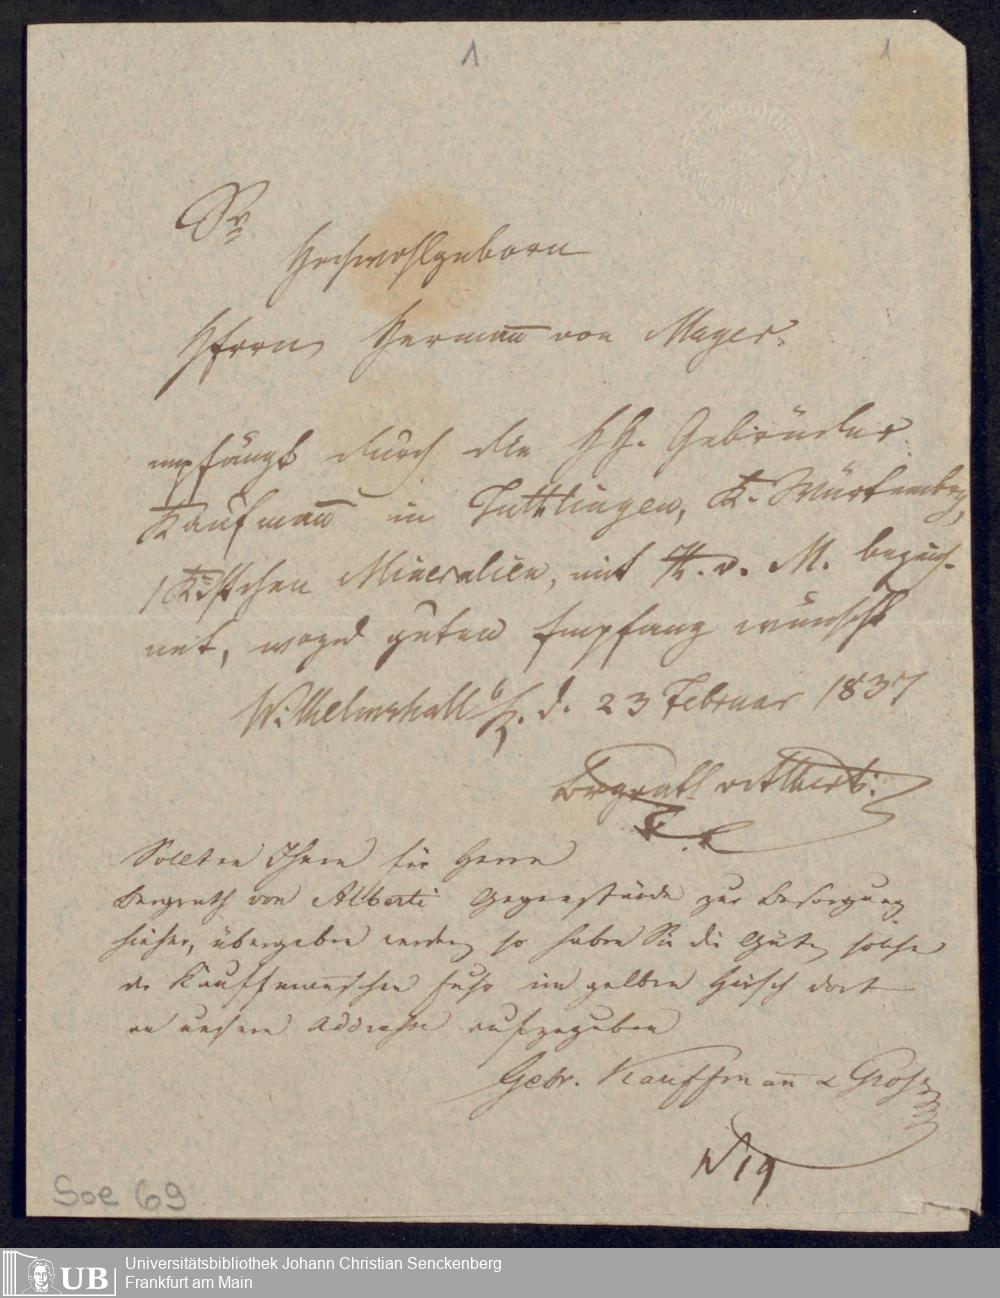 1 1
Sr
Hochwohlgeborn
Herrn Hermann von Mayer.
empfängt durch die HH. Gebrüder
Kaufmann in Tuttlingen, K. Würtemberg,
1 Kistchen Mineralien, mit H. v. M. bezeich-
net, wozu guten Empfang wünscht
Wilhelmshall d. 23 Februar 1837
Bergrath v Alberti.
Sollten Ihnen für Herrn
Bergrath von Alberti Gegenstände zur Besorgung
hieher, übergeben werden so haben Sie die Güte solche
der Kauffmannschen Fuhr im gelben Hirsch dort
an unsere Addresse aufzugeben
Gebr. Kauffmann & Groß
N 19
Soe 69
UB Universitätsbibliothek Johann Christian Senckenberg
Frankfurt am Main